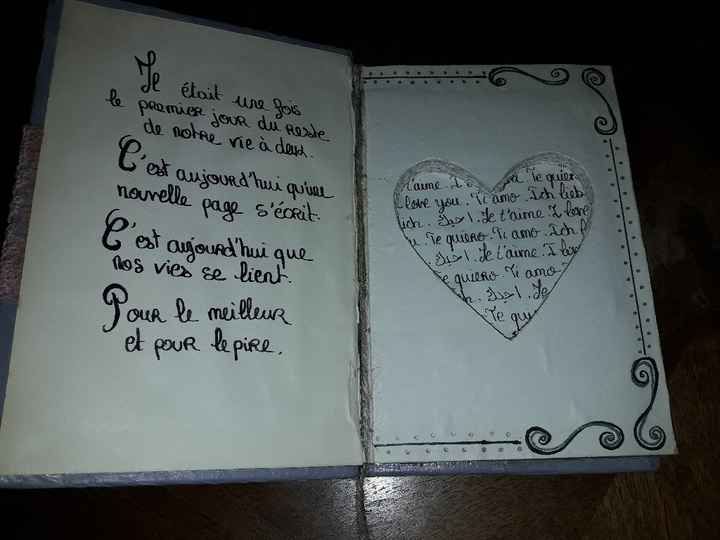 Il était une fois
le premier jour du reste
de notre vie à deux.
C'est aujourd'hui qu'une
nouvelle page s'écrit.
C'est aujourd'hui que
nos vies se lient.
Pour le meilleur
et pour le pire.
t'aime. I Te quier
love you. Ti amo. Ich lieb
ich. أحبك. Je t'aime. I love
u. Te quiero. Ti amo. Ich l
أحبك. Je t'aime. I lov
e quiero. Ti amo.
h. أحبك. Je
Te qui